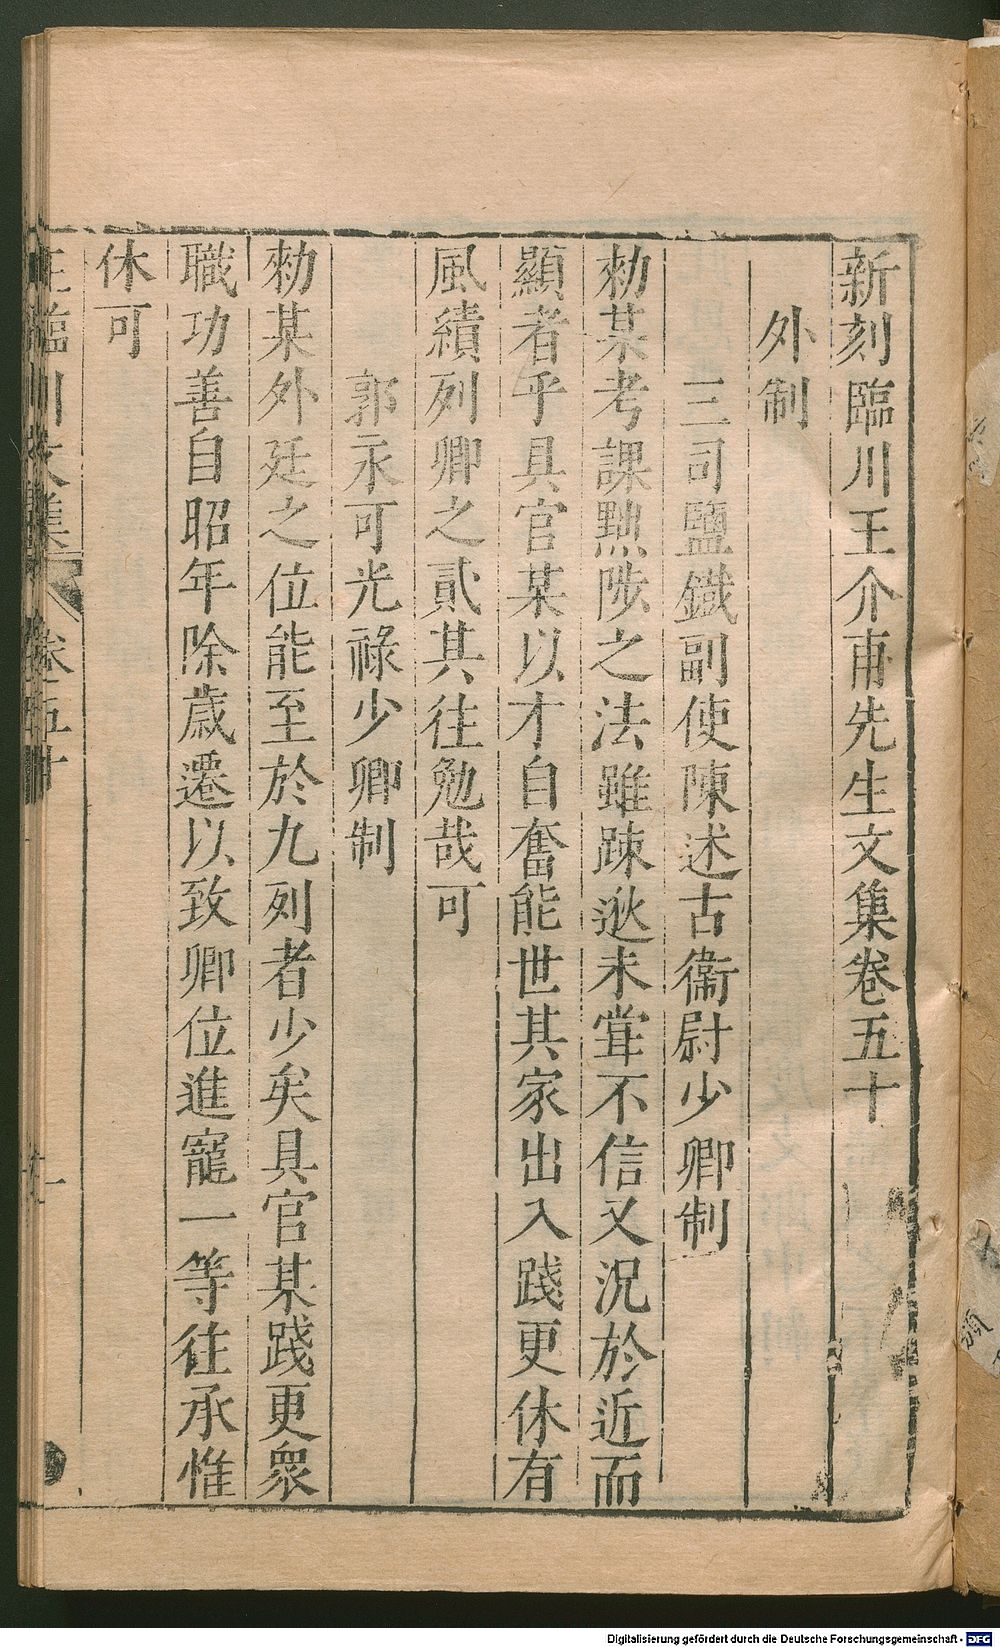 新刻臨川王介甫先生文集卷五十
外制
三司鹽鐵副使陳述古衞尉少卿制
勑某考課黜陟之法雖踈逖未甞不信又況於近而
顯者乎具官某以才自奮能世其家出入踐更休有
風績列卿之貳其往勉哉可
郭永可光祿少卿制
勑某外廷之位能至於九列者少矣具官某踐更衆
職功善自昭年除歲遷以致卿位進寵一等往承惟
休可
王臨川文集 卷五十 一
Digitalisierung gefördert durch die Deutsche Forschungsgemeinschaft - DFG